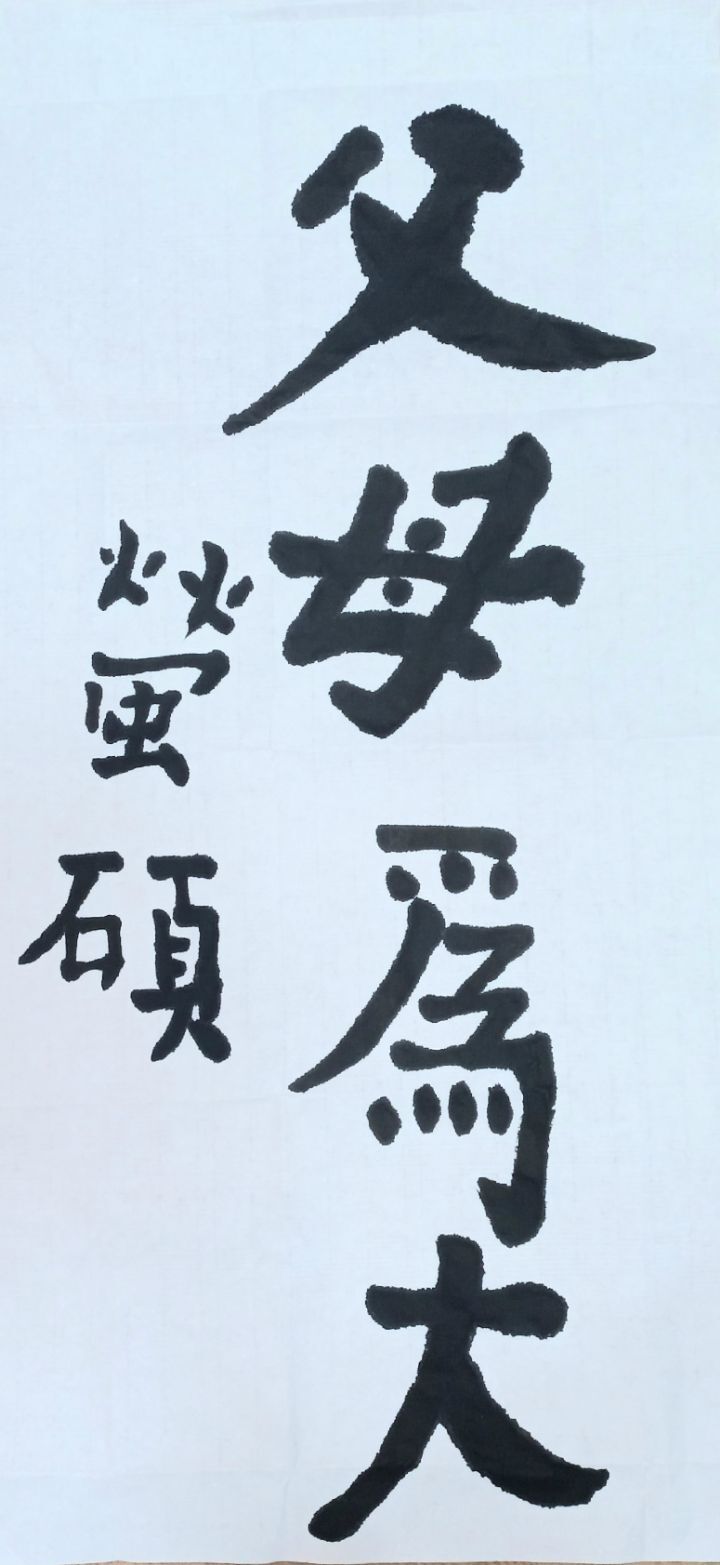 父母爲大
螢碩